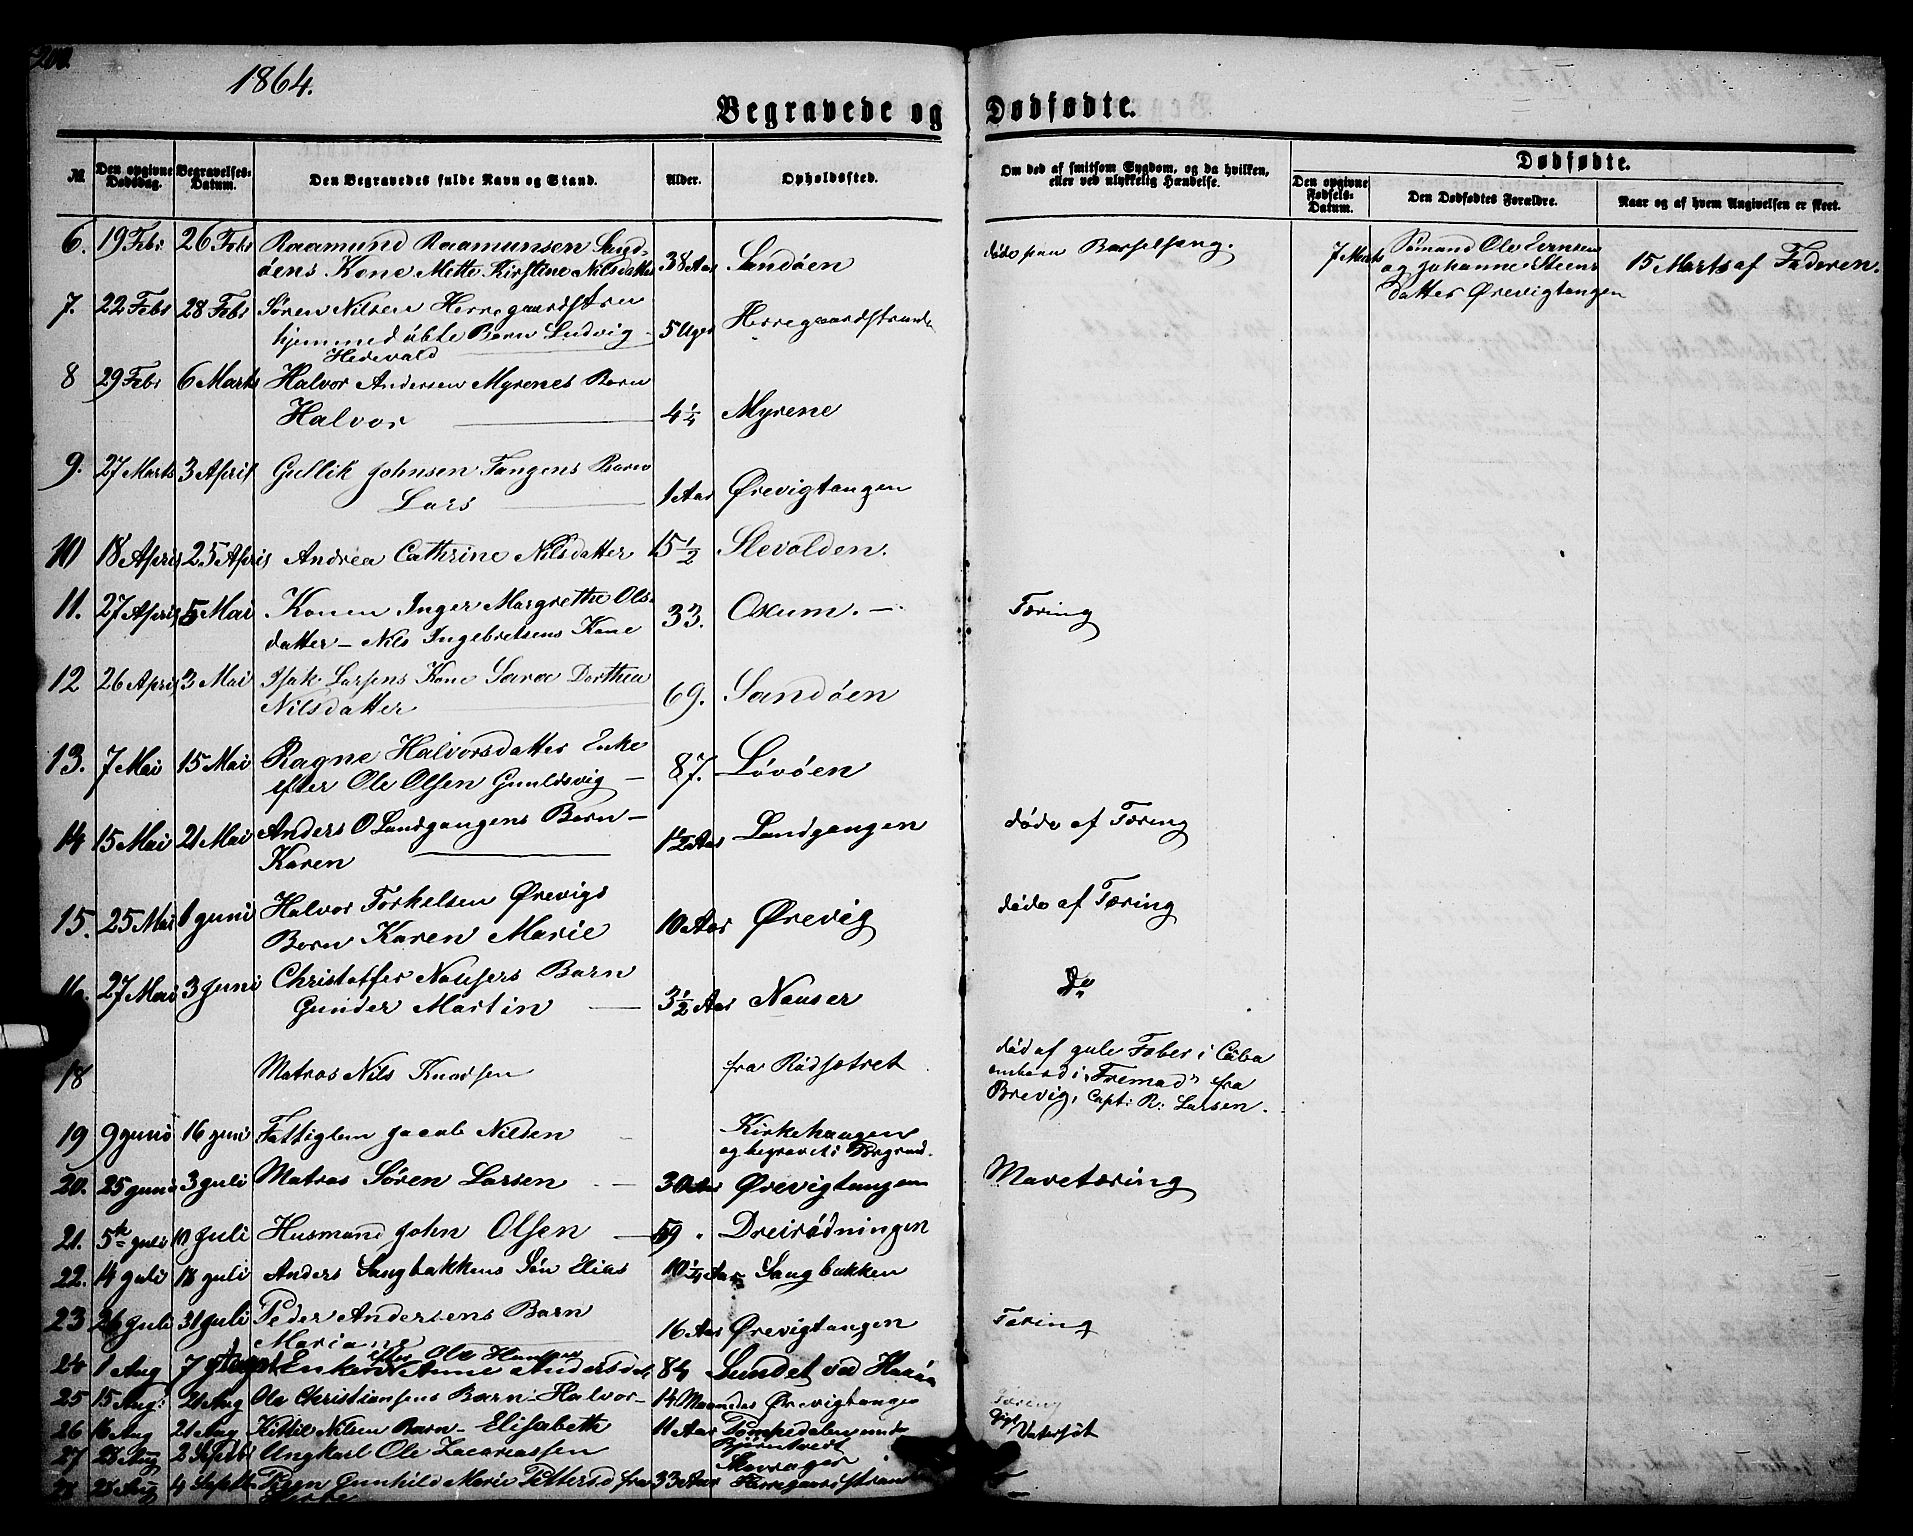 200.
1864.
Begravede og Dødfødte.
№
Den opgivne Dødsdag.
Begravelses-Datum.
Den Begravedes fulde Navn og Stand.
Alder.
Opholdssted.
Om død af smitsom Sygdom, og da hvilken, eller ved ulykkelig Hændelse.
Dødfødte.
Den opgivne Fødsels-Datum.
Den Dødfødtes Forældre.
Naar og af hvem Angivelsen er skeet.
6. 19 Febr 26 Febr Raamund Raamunsen Sand-
øens Kone Mette Kirstine Nilsdatter 38 Aar Sandøen døde paa Barselseng.
7 Marts Sømand Ole Evensen
og Johanne Steens
datter Ørevigtangen 15 Marts af Faderen.
7. 22 Febr 28 Febr Søren Nilsen Herregaardstran
hjemmedøbte Barn Ludvig
Hedevald 5 Uger Herregaardstranden
8 29 Febr 6 Marts Halvor Andersen Myrenes Barn
Halvor 4 1/4 Myrene
9. 27 Marts 3 April Gullik Johnsen Tangens Barn
Lars 1 Aar Ørevigtangen
10 18 April 25 April Andrea Cathrine Nilsdatter 15 1/2 Slevolden.
11. 27 April 5 Mai Konen Inger Margrethe Ols-
datter - Nils Ingebretsens Kone 33. Oxum. - Tæring
12 26 April 3 Mai Isak Larsens Kone Sara Dorthea
Nilsdatter 69. Sandøen
13. 7 Mai 15 Mai Ragne Halvorsdatter Enke
efter Ole Olsen Gunldsvig - 87. Løvøen
14 15 Mai 21 Mai Anders O Landgangens Barn -
Karen 1 1/2 Aar Landgangen døde af Tæring
15. 25 Mai 1 Juni Halvor Torkelsen Ørevigs
Barn Karen Marie 10 Aar Ørevig døde af Tæring
16. 27 Mai 3 Juni Christoffer Nausers Barn
Gunder Martin 3 1/2 Aar Nauser Do
18 Matros Nils Knudsen fra Rødsætret død af gule Feber i Cuba
ombord i "Fremad" fra
Brevig, Capt: R: Larsen.
19 9 Juni 16 Juni Fattiglem Jacob Nilsen Kirkehaugen
og begravet i Porsgrund.
20. 25 Juni 3 Juli Matros Søren Larsen 30 Aar Ørevigtangen Mavetæring
21. 5te Juli 10 Juli Husmand John Olsen 59. Dreirødningen
22. 14 Juli 18 Juli Anders Sangbakkens Søn Elias 10 1/4 Aar Sangbakken
23 26 Juli 31 Juli Peder Andersens Barn
Mariane 16 Aar Ørevigtangen Tæring
24 1 Aug 7 August Enken Anne Andersdatter
efter Ole Hansen 84 Sundet ved
25 15 Aug: 21 Aug Ole Christiansens Barn Halvor - 14 Maaneder Ørevigtangen Tæring
26 16 Aug 21 Aug Kittil Nilsen Barn - Elisabeth 11 Aar under
Bjørntvedt Vatersot
27 28 Aug 2 Septbr Ungkarl Ole Zacariassen
28 28 Aug 4 Septbr Pigen Gunhild Marie Pettersd fra 33 Aar Herregaardstrand